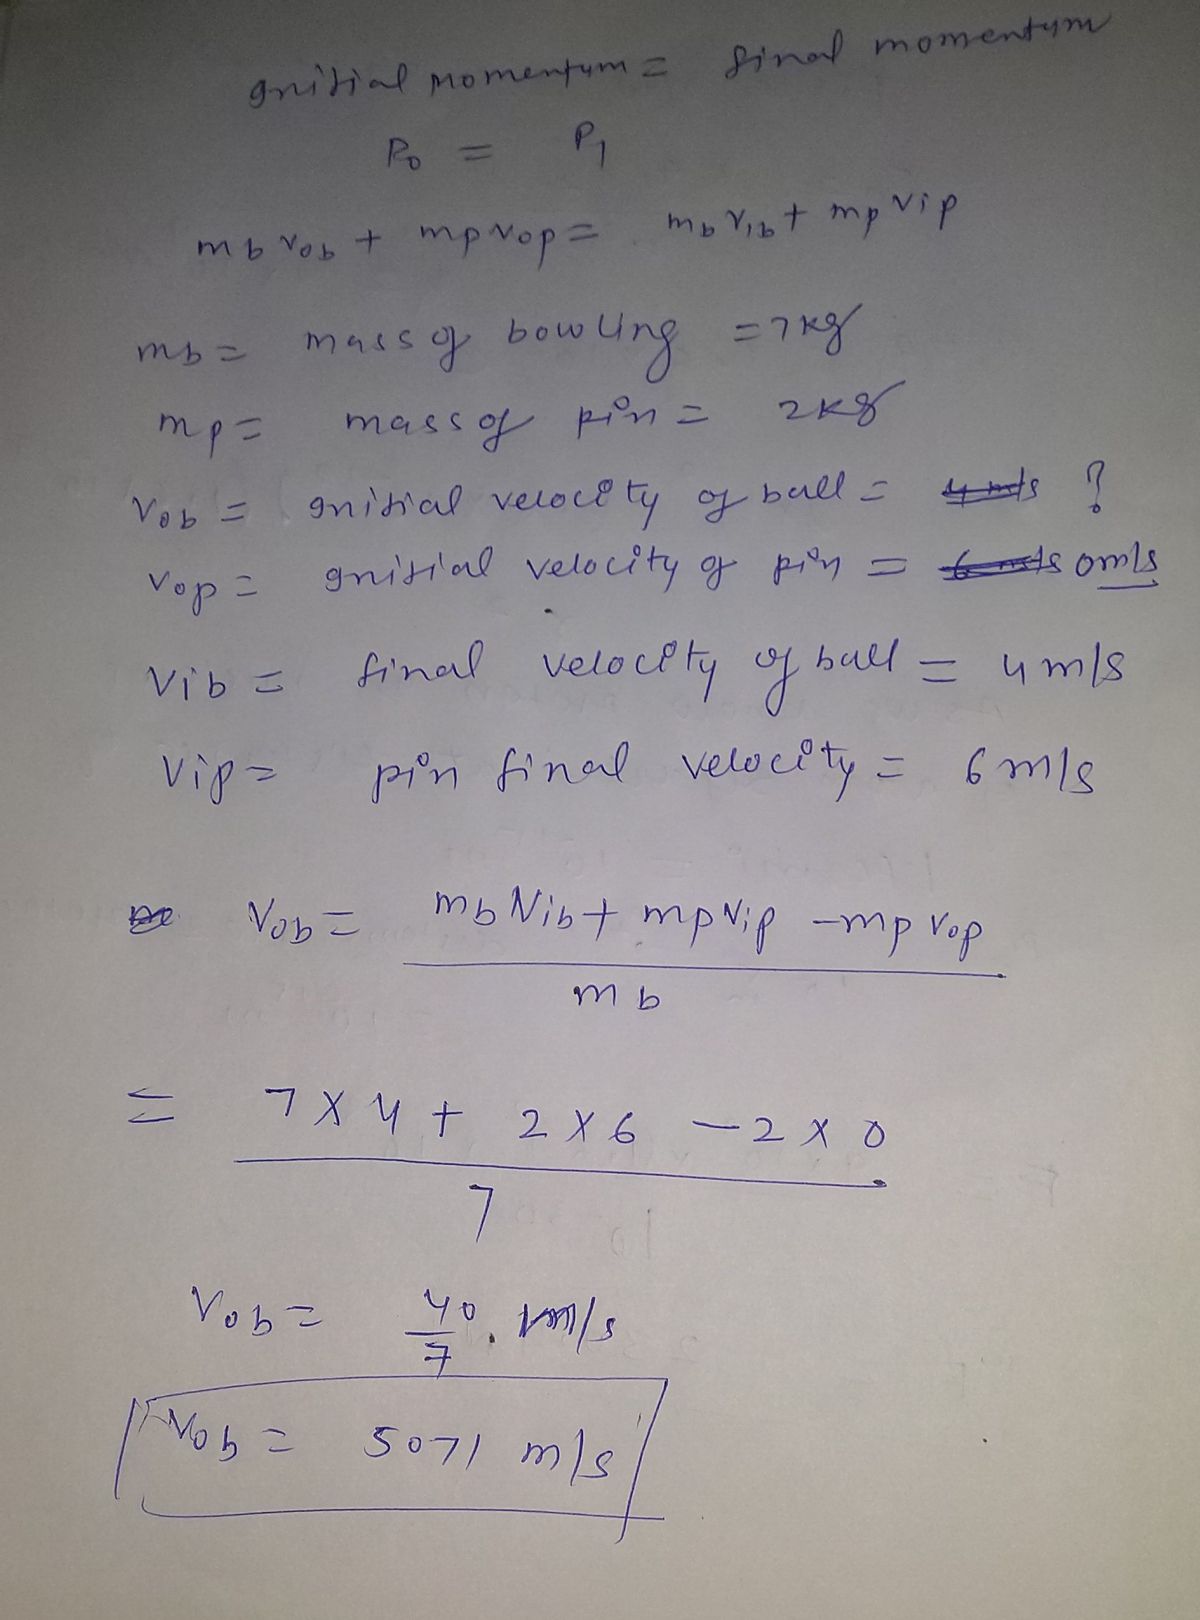 initial momentum = final momentum
P0 = P1
mb vob + mp vop = mb vib + mp vip
mb = mass of bowling = 7kg
mp = mass of pin = 2kg
vob = initial velocity of ball = 4 m/s ?
vop = initial velocity of pin = 6 m/s 0m/s
vib = final velocity of ball = 4 m/s
vip = pin final velocity = 6 m/s
vob = mb vib + mp vip - mp vop
mb
= 7 x 4 + 2 x 6 - 2 x 0
7
vob = 40/7 m/s
vob = 5071 m/s